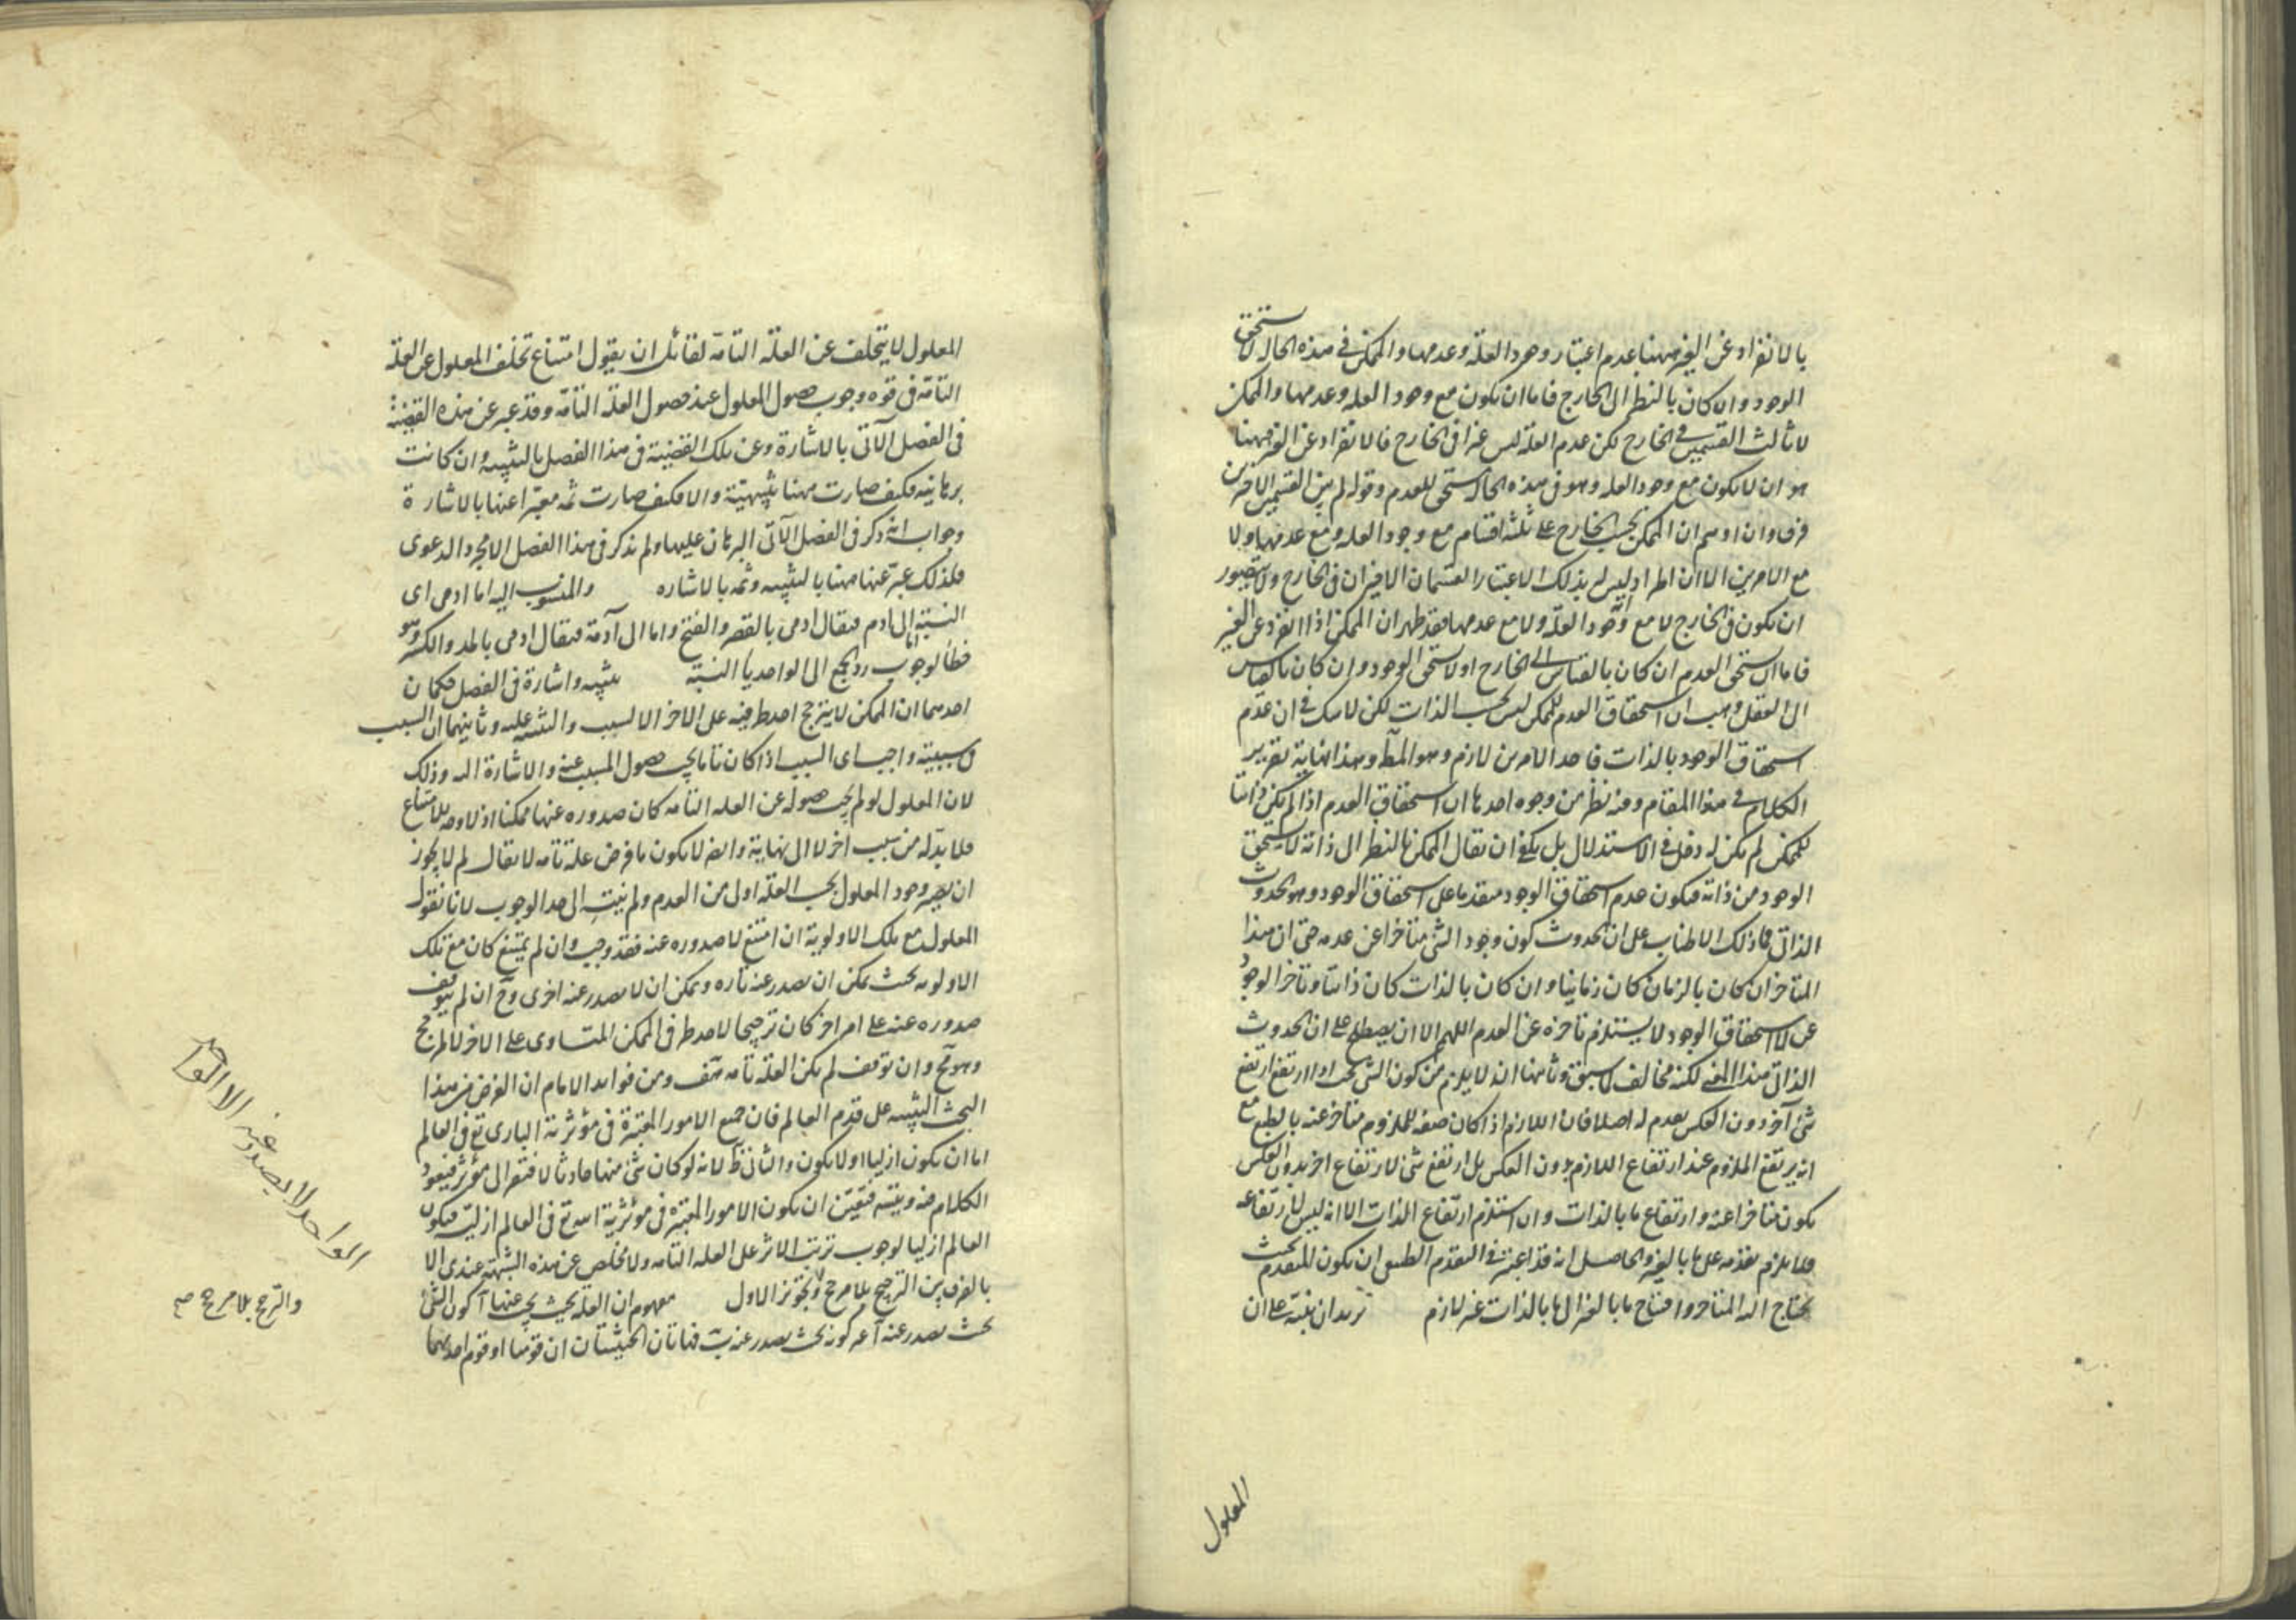 بالانفراد عن الغير ههنا بعدم اعتبار وجود العلة وعدمها والممكن فى هذه الحال لا يستحق
الوجود وان كان بالنظر الى الخارج فاما ان يكون مع وجود العله وعدمها والممكن
لا ثالث القسمين فى الخارج لكن عدم العلة ليس غيرا فى الخارج فالانفراد عن الغير ههنا
هو ان لا يكون مع وجود العله وهو فى هذه الحال يستحق للعدم وقوله لم بين القسمين الاخرين
فرق وان اوهم ان الممكن بحسب الخارج على ثلثة اقسام مع وجود العله ومع عدمها ولا
مع الامرين الا ان المراد ليس بذلك الاعتبار القسمان الاخيران فى الخارج ولا يتصور
ان يكون فى الخارج لا مع وجود العلة ولا مع عدمها فقد ظهر ان الممكن اذا انفرد عن الغير
فاما ان يستحق العدم ان كان بالقياس الى الخارج او لا يستحق الوجود وان كان بالقياس
الى العقل وهب ان استحقاق العدم للممكن ليس بحسب الذات لكن لا شك فى ان عدم
استحقاق الوجود بالذات فاحد الامرين لازم وهو المط وهذا نهاية تقرير
الكلام فى هذا المقام وفيه نظر من وجوه احدها ان استحقاق العدم اذا لم يكن ذاتيا
للممكن لم يكن له دخل فى الاستدلال بل يكفى ان يقال الممكن بالنظر الى ذاته لا يستحق
الوجود من ذاته فيكون عدم استحقاق الوجود متقدما على استحقاق الوجود وهو الحدوث
الذاتى فما ذلك الاطناب على ان الحدوث كون وجود الشئ متاخرا عن عدمه حتى ان هذا
المتاخر ان كان بالزمان كان زمانيا وان كان بالذات كان ذاتيا وتاخر الوجود
عن لا استحقاق الوجود لا يستلزم تاخره عن العدم اللهم الا ان يصطلح على ان الحدوث
الذاتى هذا المعنى لكنه مخالف لما سبق وثانيها انه لا يلزم من كون الشئ بحيث اذا ارتفع ارتفع
شئ آخر دون العكس تقدم له اصلا فان اللازم اذا كان صفة للملزوم متاخر عنه بالطبع مع
انه يرتفع الملزوم عند ارتفاع اللازم بدون العكس بل ارتفع شئ لارتفاع اخر بدون العكس
يكون متاخرا عنه وارتفاع ما بالذات وان استلزم ارتفاع الذات الا انه ليس لارتفاعه
فلا يلزم تقدمه على ما بالغير والحاصل انه قد اعتبر فى التقدم الطبيعى ان يكون المتقدم بحيث
يحتاج اليه المتاخر واحتياج ما بالغير الى ما بالذات غير لازم يريد ان ينبه على ان
المعلول
المعلول لا يتخلف عن العلة التامة لقائل ان يقول امتناع تخلف المعلول عن العلة
التامة فى قوة وجوب حصول المعلول عند حصول العلة التامة وقد عبر عن هذه القضية
فى الفصل الآتى بالاشارة وعن تلك القضية فى هذا الفصل بالتنبيه وان كانت
برهانيه فكيف صارت ههنا تنبيهية والا فكيف صارت ثمه معبرا عنها بالاشارة
وجواب انه ذكر فى الفصل الآتى البرهان عليها ولم يذكر فى هذا الفصل الا مجرد الدعوى
فلذلك عبر عنها ههنا بالتنبيه وثمه بالاشاره والمنسوب اليه اما ادمى اى
النسبة الى ادم فيقال ادمى بالقصر والفتح واما الى آدمة فيقال ادمى بالمد والكسر وهو
خطأ لوجوب رد الجمع الى الواحد ياء النسبة تنبيه واشارة فى الفصل حكمان
احدهما ان الممكن لا يترجح احد طرفيه على الاخر الا لسبب والتنبيه عليه وثانيهما ان السبب
فى سببيته واجب اى السبب اذا كان تاما يجب حصول المسبب عنه والاشارة اليه وذلك
لان المعلول لو لم يجب حصوله عن العله التامه كان صدوره عنها ممكنا اذ لا وجه للامتناع
فلا بد له من سبب اخر لا الى نهاية وايضا لا يكون ما فرض علة تامه لا يقال لم لا يجوز
ان يصير وجود المعلول بحسب العلة اولى من العدم ولم ينته الى حد الوجوب لانا نقول
المعلول مع تلك الاولوية ان امتنع لا صدوره عنه فقد وجب وان لم يمتنع كان مع تلك
الاولويه بحيث يمكن ان يصدر عنه تاره ويمكن ان لا يصدر عنه اخرى وح ان لم يتوقف
صدوره عنه على امر اخر كان ترجيحا لاحد طرفى الممكن المتساوى على الاخر لا لمرجح
وهو مح وان توقف لم يكن العلة تامه هف ومن فوايد الامام ان الغرض من هذا
البحث التنبيه على قدم العالم فان جميع الامور المعتبرة فى مؤثرية البارى تع فى العالم
اما ان يكون ازليا او لا يكون والثانى نظ لانه لو كان شئ منها حادثا لافتقر الى مؤثر فيعود
الكلام فيه ويتسلسل فتعين ان يكون الامور المعتبرة فى مؤثرية الله تع فى العالم ازلية فيكون
العالم ازليا لوجوب ترتب الاثر على العله التامه ولا مخلص عن هذه الشبهة عندى الا
بالفرق بين الترجيح بلا مرجح وتجويز الاول مفهوم ان العلة بحيث يجب عنها آ كون الشئ
بحيث يصدر عنه آ غير كونه بحيث يصدر عنه ب فهاتان الحيثيتان ان قومتا او قوم احديهما
الواحد لا يصدر عنه الا الواحد
والترجح بلا مرجح صح